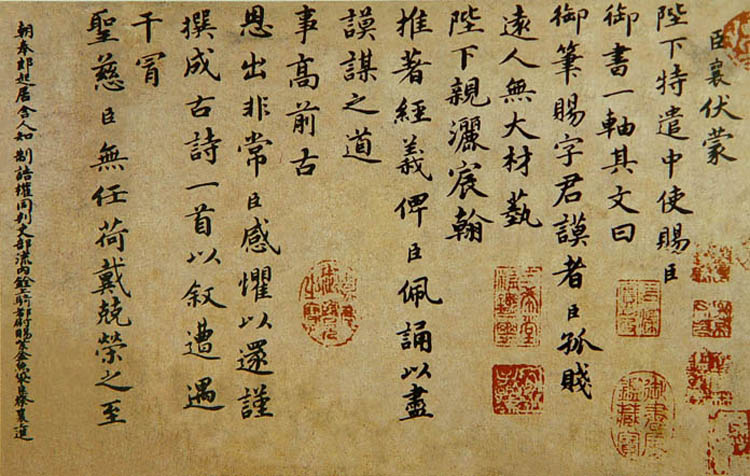 臣襄伏蒙
陛下特遣中使賜臣
御書一軸其文曰
御筆賜字君謨者臣孤賤
遠人無大材藝
陛下親灑宸翰
推著經義俾臣佩誦以盡
謨謀之道
事高前古
恩出非常臣感懼以還謹
撰成古詩一首以叙遭遇
干冐
聖慈臣無任荷戴兢榮之至
朝奉郎起居舍人知制誥權同判吏部流內銓上騎都尉賜紫金魚袋臣蔡襄進